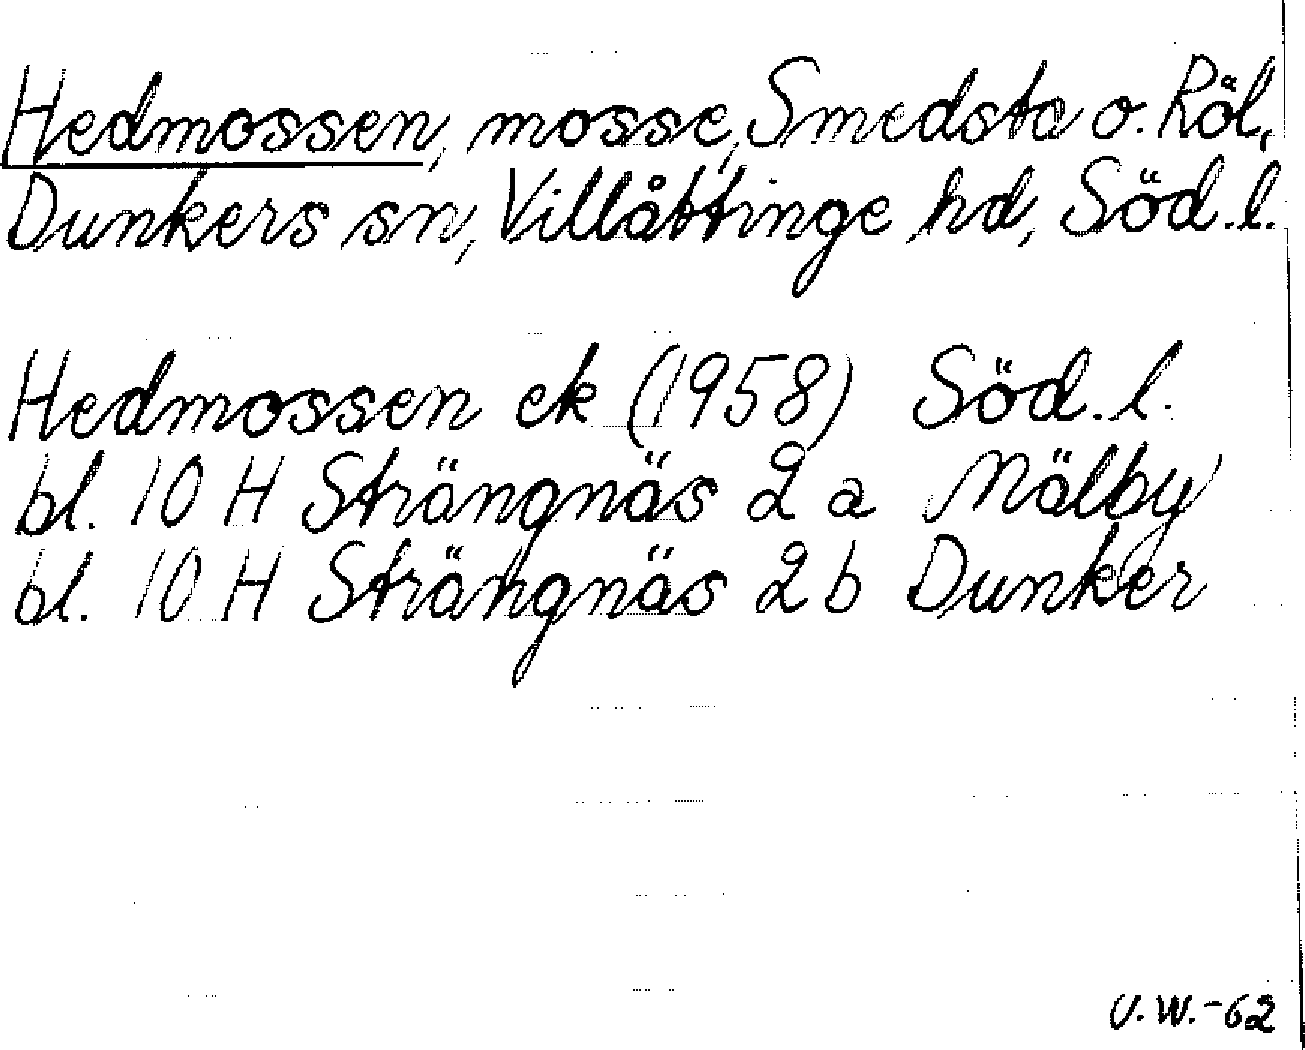 Hedmossen, mosse, Smedsta o. Röl,
Dunkers sn, Villåttinge hd, Söd. l.
Hedmossen ek (1958) Söd. l.
bl. 10 H Strängnäs 2 a Mälby
bl. 10 H Strängnäs 2 b Dunker
U.W.-62